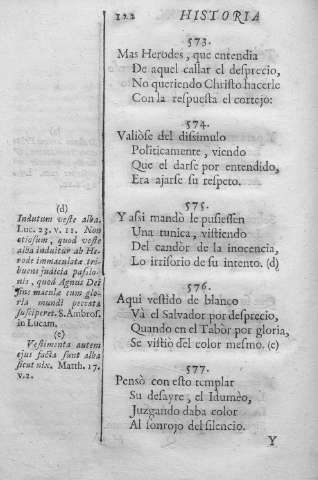 122 HISTORIA
573.
Mas Herodes, que entendia
De aquel callar el desprecio,
No queriendo Christo hacerle
Con la respuesta el cortejo:
574.
Valiòse del dissimulo
Politicamente, viendo
Que el darse por entendido,
Era ajarse su respeto.
575.
Y assi mandò le pusiessen
Una tunica, vistiendo
Del candòr de la inocencia,
Lo irrisorio de su intento. (d)
576.
Aqui vestido de blanco
Và el Salvador por desprecio,
Quando en el Tabòr por gloria,
Se vistiò del color mesmo. (e)
577.
Pensò con esto templar
Su desayre, el Idumèo,
Juzgando daba color
Al sonrojo del silencio.
Y
(d)
Indutum veste alba.
Luc. 23. v. 11. Non
otiosum, quod veste
alba induitur ab He-
rode immaculatæ tri-
buens judicia passio-
nis, quod Agnus Dei
sine macula cum glo-
ria mundi peccata
susciperet. S. Ambros.
in Lucam.
(e)
Vestimenta autem
ejus facta sunt alba
sicut nix. Matth. 17.
v. 2.